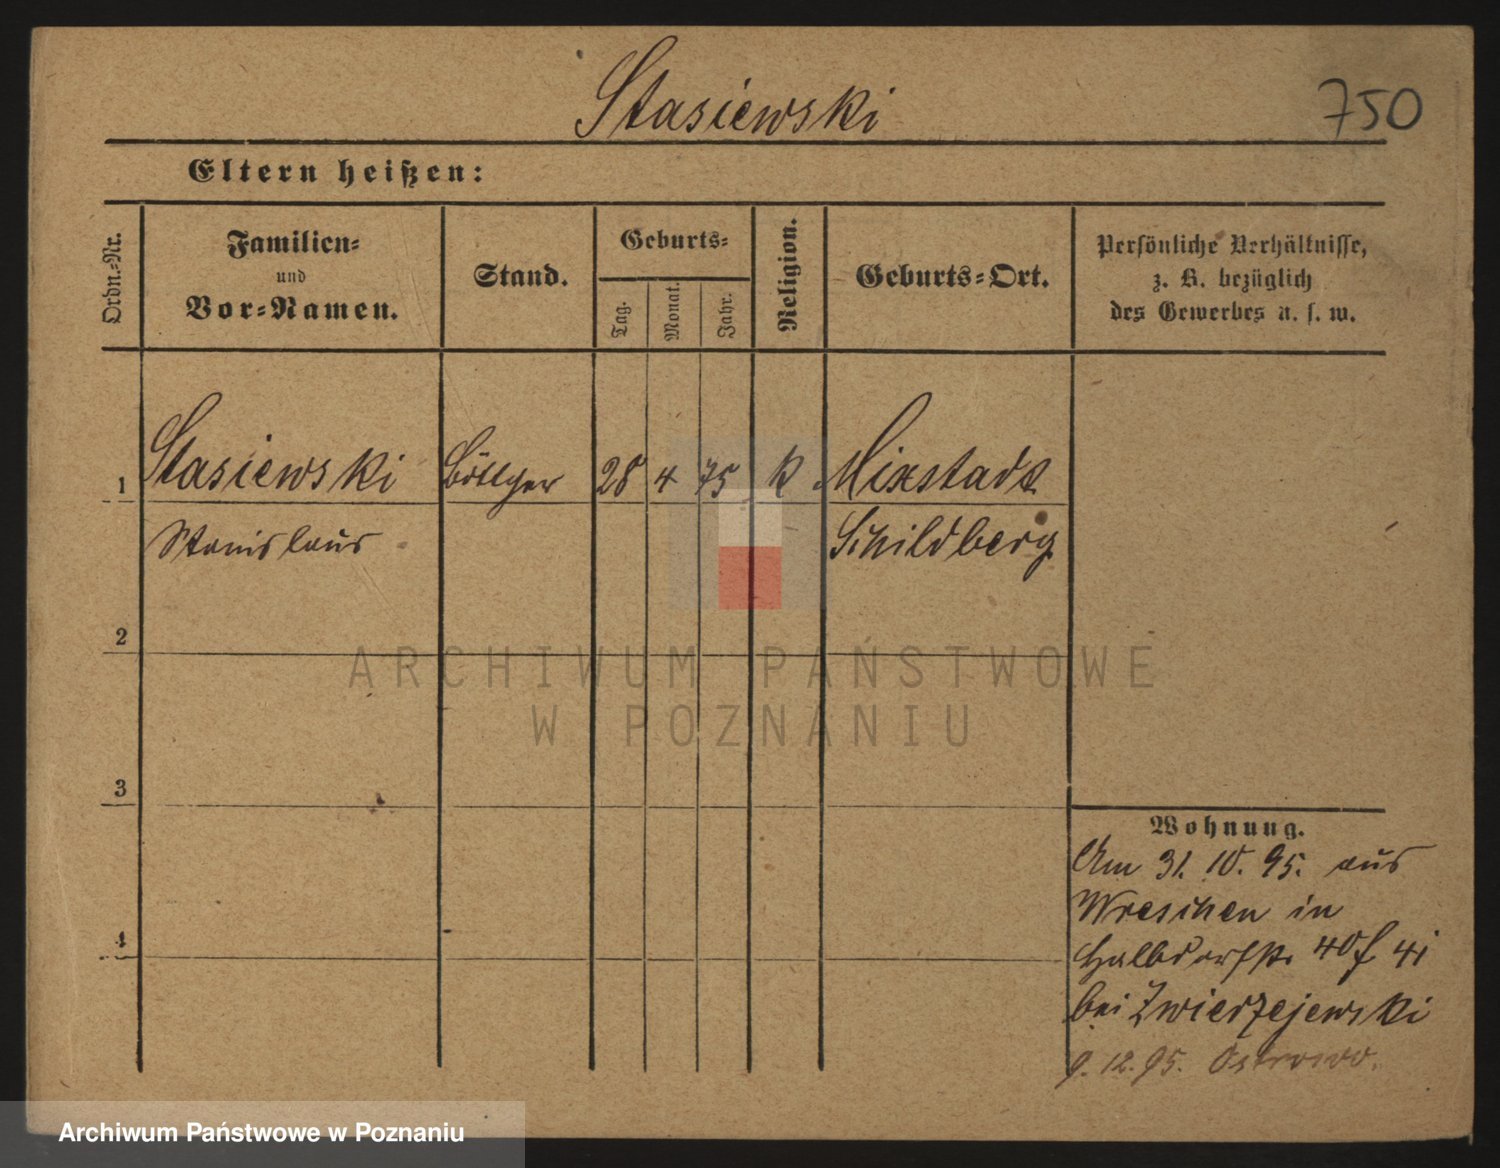 Stasiewski
750
Eltern heißen:
Ordn.-Nr.
Familien-
und
Vor-Namen.
Stand.
Geburts-
Tag.
Monat.
Jahr.
Religion.
Geburts-Ort.
Persönliche Verhältnisse,
z. B. bezüglich
des Gewerbes u. s. w.
1
Stasiewski Böttger 28 4 75 k Mixstadt
Stanislaus Schildberg
2
3
4
Wohnung.
Am 31. 10. 95. aus
Wreschen in
Halbdorfstr. 40 f 4i
bei Zwierzejewski
9. 12. 95. Ostrowo.
ARCHIWUM PAŃSTWOWE
W POZNANIU
Archiwum Państwowe w Poznaniu